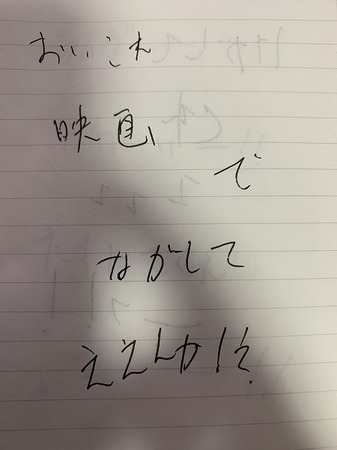 おいこれ
映画で
ながして
ええんか!?